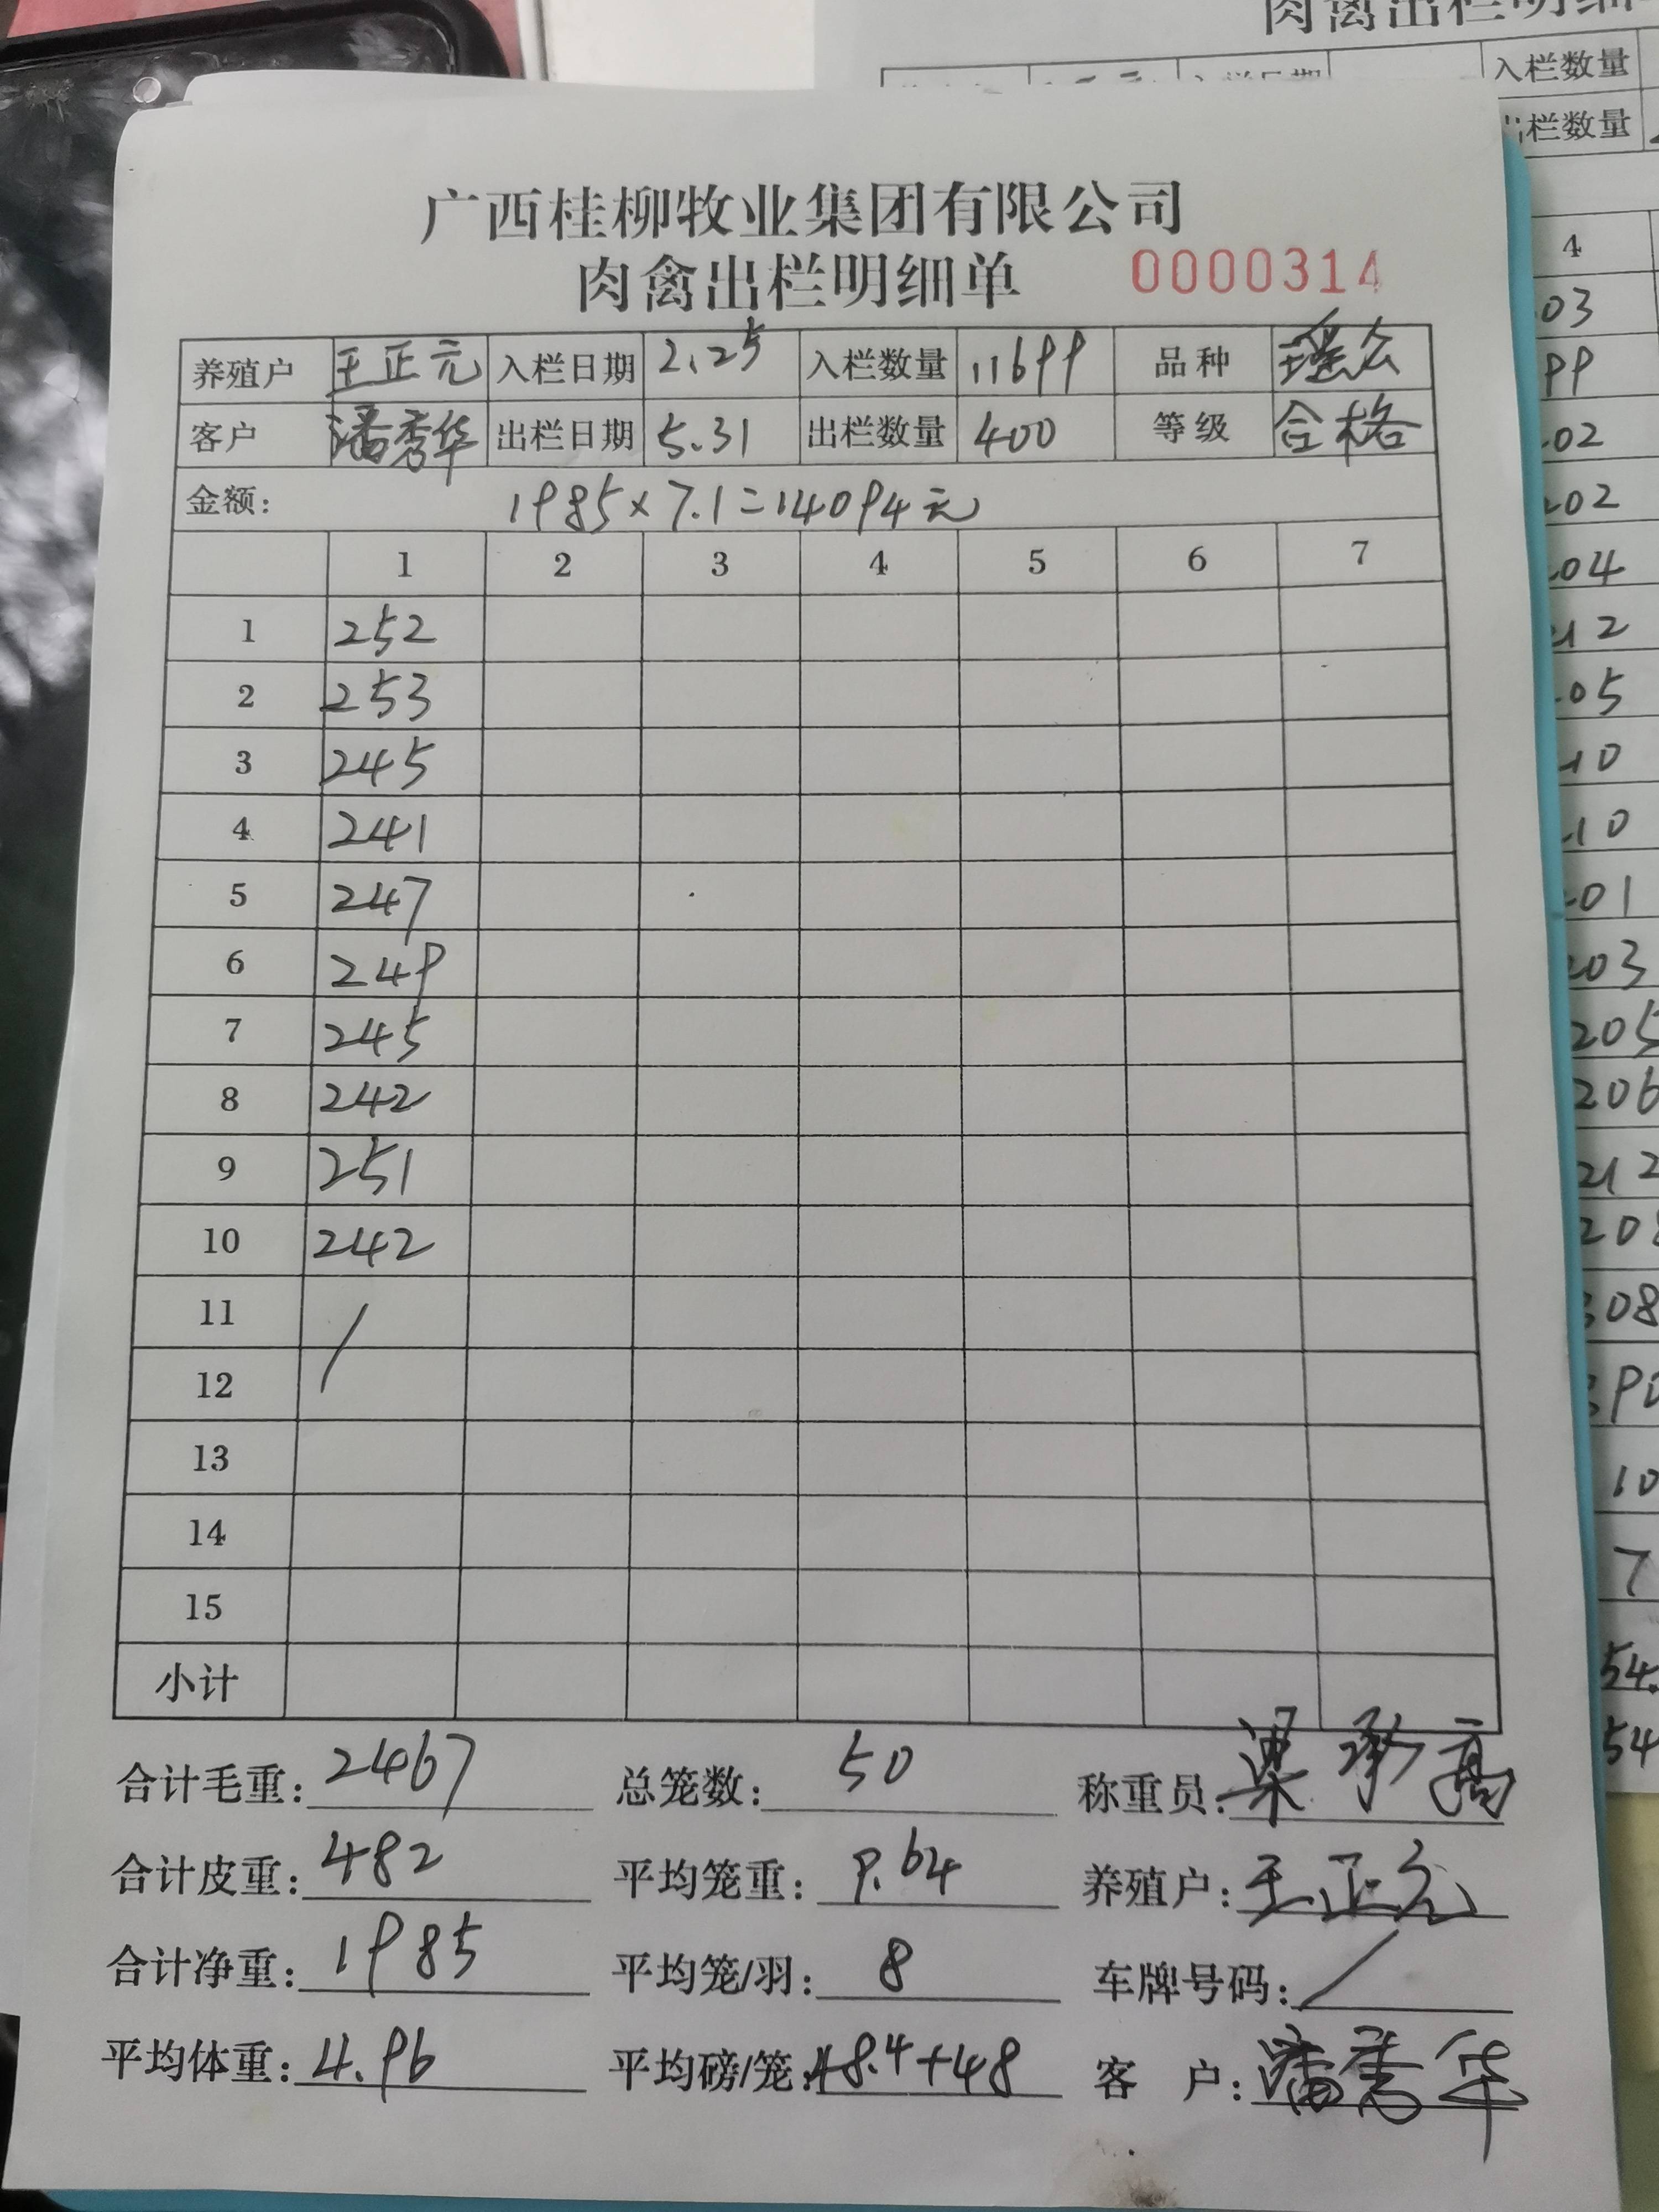 肉禽出栏明细
入栏数量
出栏数量
4
广西桂柳牧业集团有限公司
肉禽出栏明细单 0000314
养殖户 王正元 入栏日期 2.25 入栏数量 11699 品种 瑶众
客户 潘秀华 出栏日期 5.31 出栏数量 400 等级 合格
金额: 1985×7.1=14094元
1 2 3 4 5 6 7
1 252
2 253
3 245
4 241
5 247
6 249
7 245
8 242
9 251
10 242
11 /
12
13
14
15
小计
合计毛重: 2467 总笼数: 50 称重员: 梁承高
合计皮重: 482 平均笼重: 9.64 养殖户: 王正元
合计净重: 1985 平均笼/羽: 8 车牌号码: /
平均体重: 4.96 平均磅/笼: 48.4+48 客 户: 潘秀华
03
99
02
202
204
212
05
10
10
01
203
205
206
212
208
308
10
7
54.
54